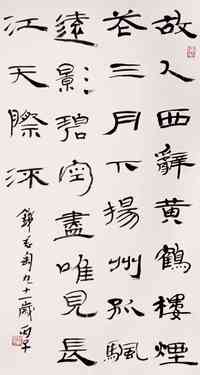 故人西辭黃鶴樓煙
花三月下揚州孤颿
遠影碧空盡唯見長
江天際流
錢君匋九十一歲丙子